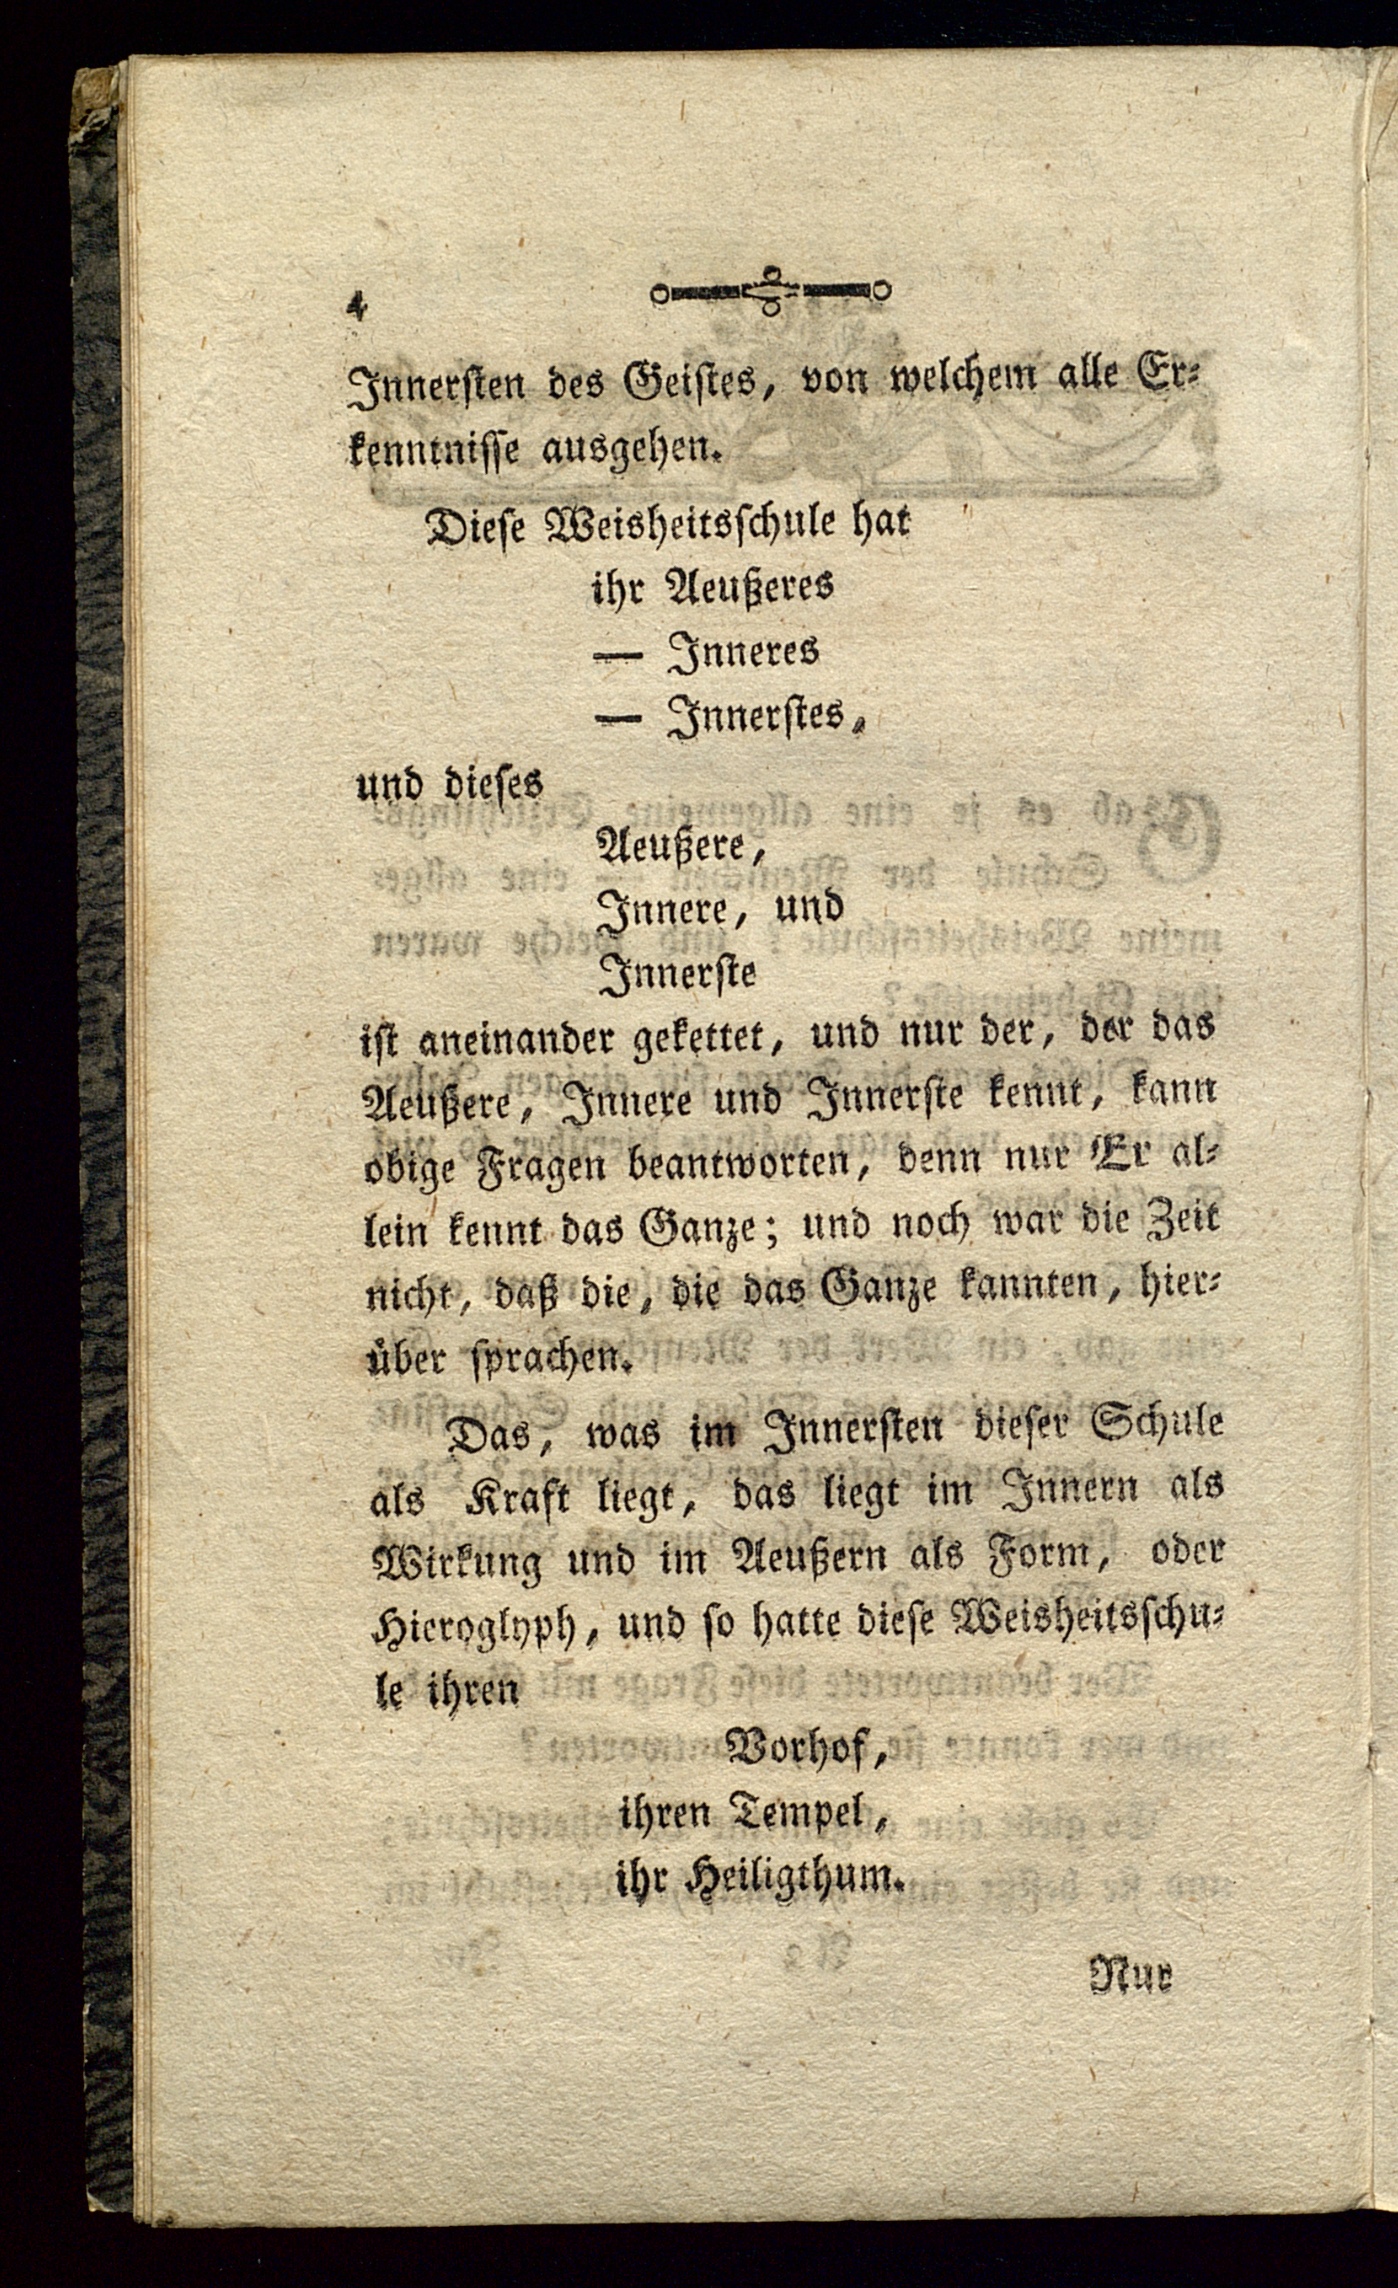 4
Innersten des Geistes, von welchem alle Er-
kenntnisse ausgehen.
Diese Weisheitsschule hat
ihr Aeußeres
— Inneres
— Innerstes,
und dieses
Aeußere,
Innere, und
Innerste
ist aneinander gekettet, und nur der, der das
Aeußere, Innere und Innerste kennt, kann
obige Fragen beantworten, denn nur Er al-
lein kennt das Ganze; und noch war die Zeit
nicht, daß die, die das Ganze kannten, hier-
über sprachen.
Das, was im Innersten dieser Schule
als Kraft liegt, das liegt im Innern als
Wirkung und im Aeußern als Form, oder
Hieroglyph, und so hatte diese Weisheitsschu-
le ihren
Vorhof,
ihren Tempel,
ihr Heiligthum.
Nur